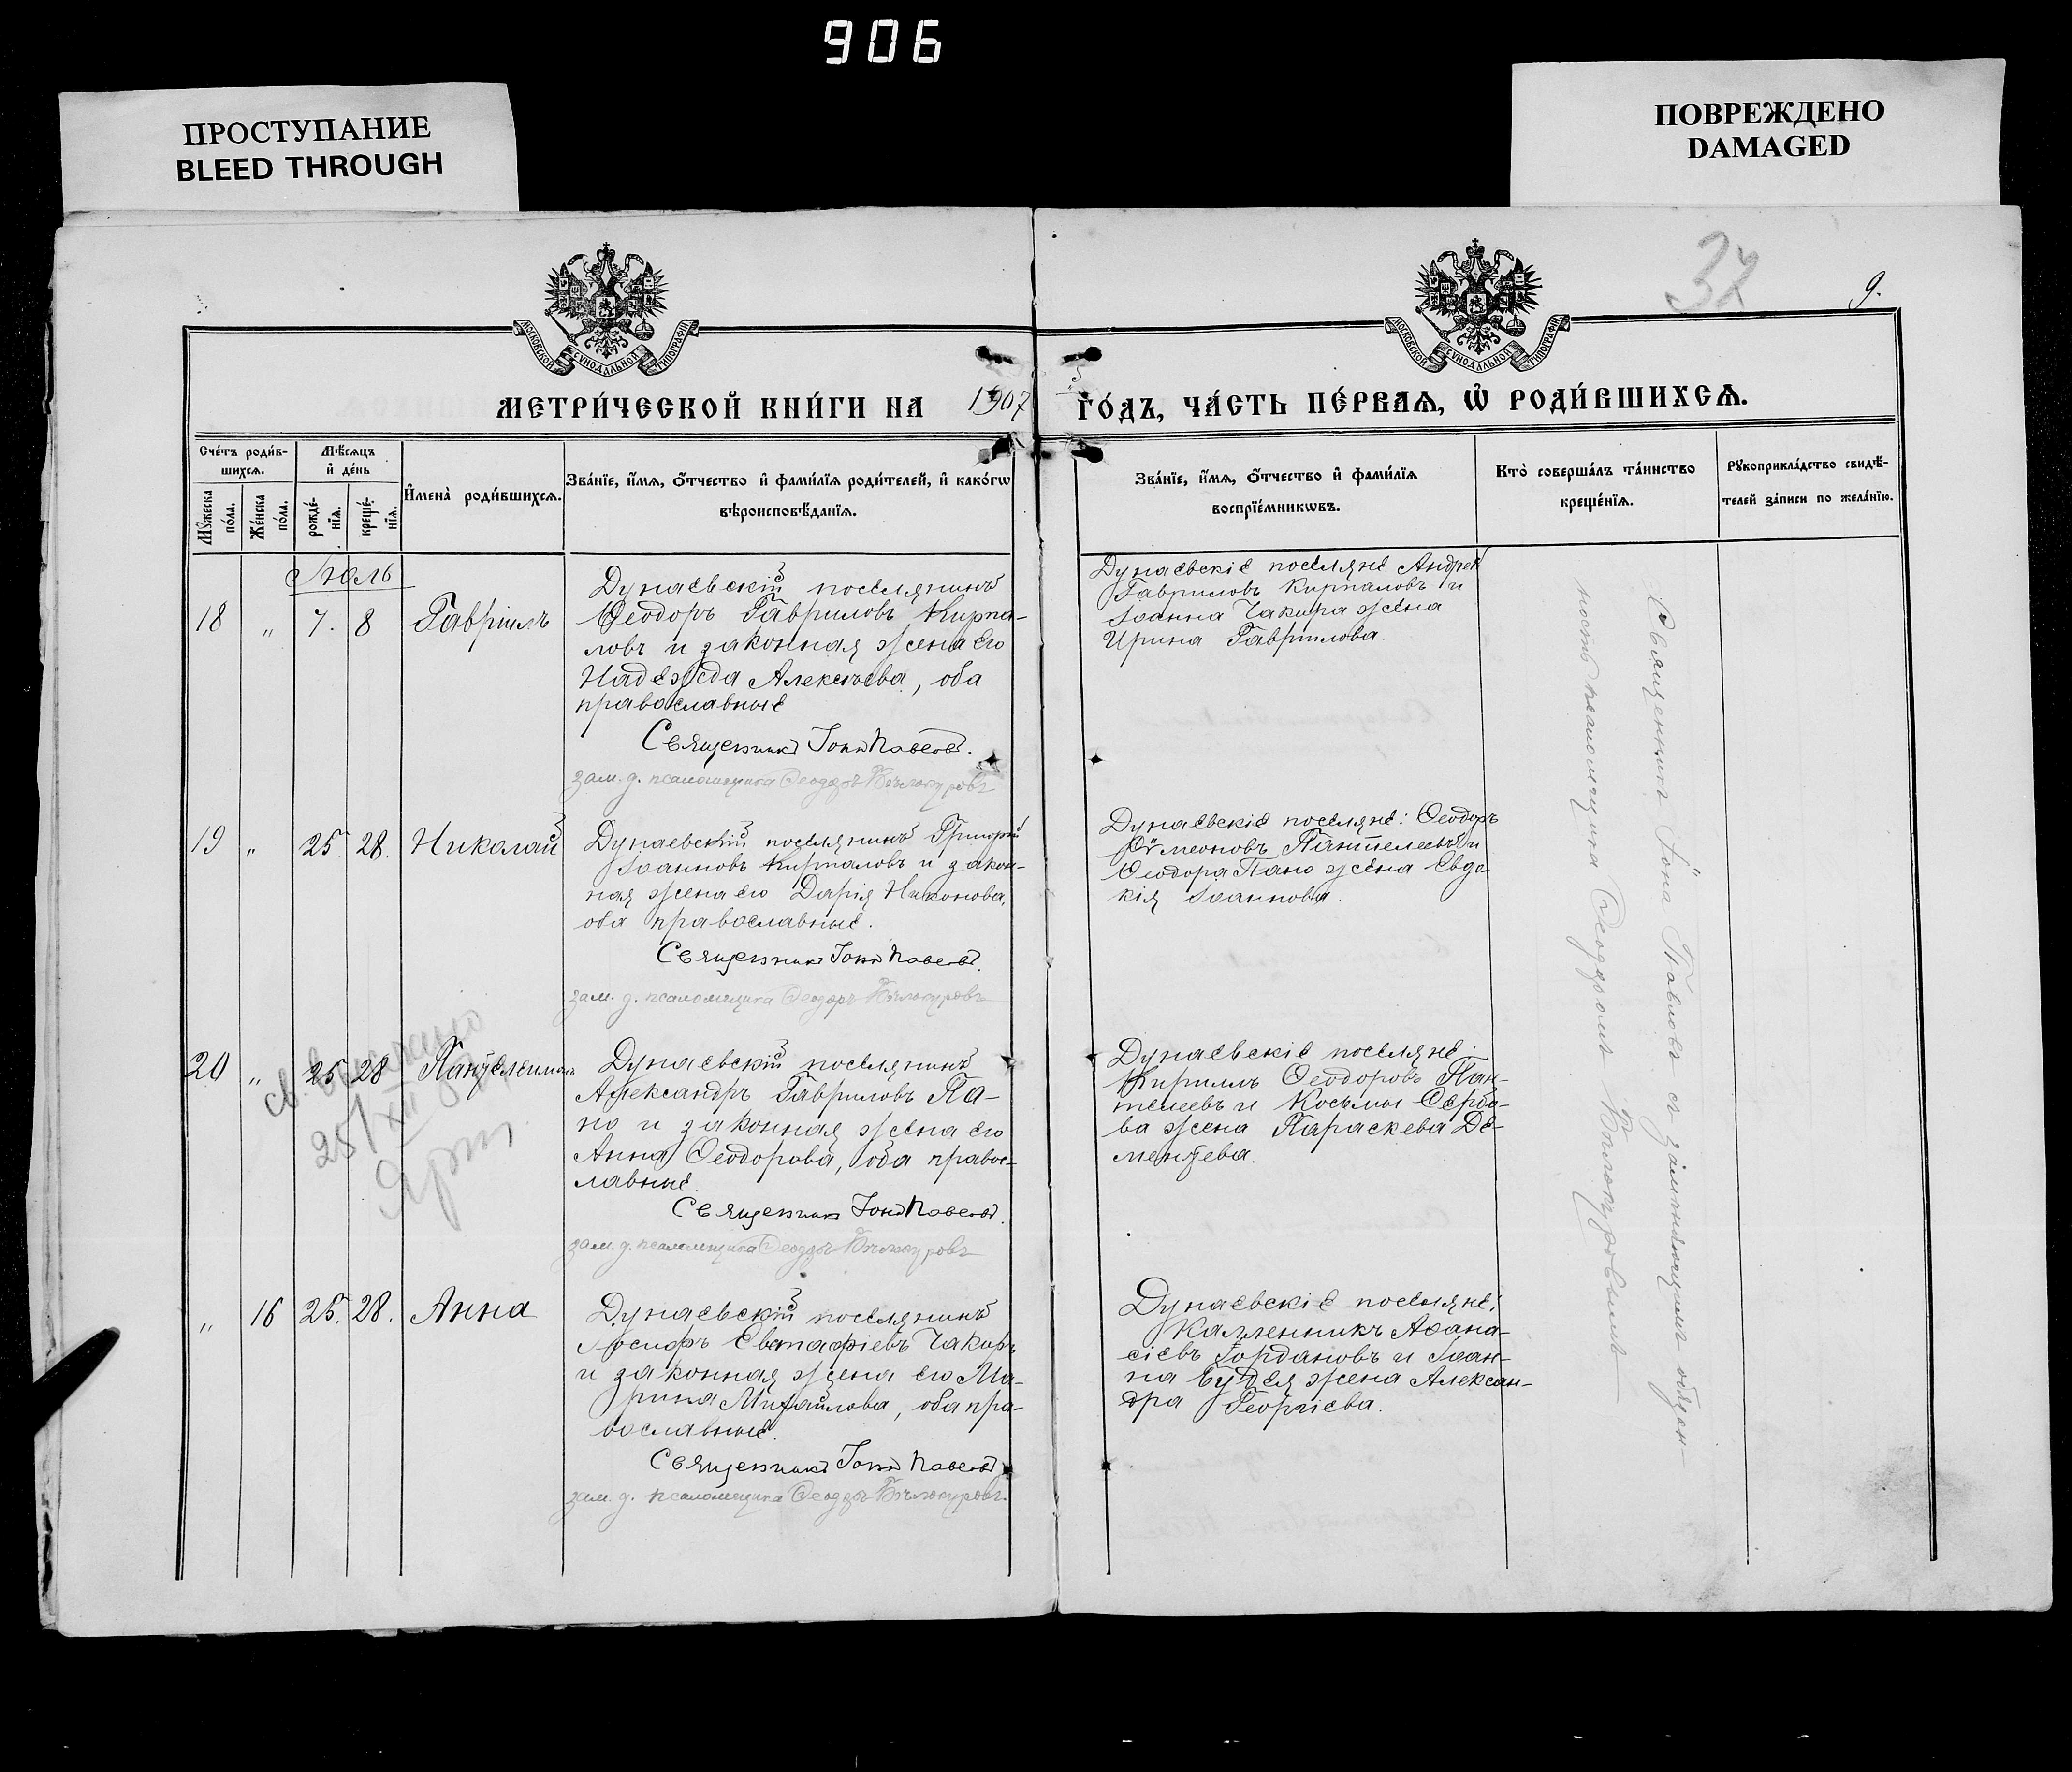 906
ПРОСТУПАНИЕ
BLEED THROUGH
ПОВРЕЖДЕНО
DAMAGED
32
9.
МОСКОВСКОЙ СѴНОДАЛЬНОЙ ТИПОГРАФІИ
МОСКОВСКОЙ СѴНОДАЛЬНОЙ ТИПОГРАФІИ
МЕТРИ́ЧЕСКОЙ КНИ́ГИ НА 1907 ГО́ДЪ, ЧА́СТЬ ПЕ́РВАѦ, Ѡ҆ РОДИ́ВШИХСѦ.
Сче́тъ роди́в-
шихсѧ.
Мꙋ́жеска
по́ла.
Же́нска
по́ла.
Мѣ́сѧцъ
и҆ де́нь
рожде́-
нїѧ.
креще́-
нїѧ.
И҆мена̀ роди́вшихсѧ.
Зва́нїе, и҆́мѧ, ѻ҆́тчество и҆ фами́лїѧ роди́телей, и҆ како́гѡ
вѣроисповѣ́данїѧ.
Зва́нїе, и҆́мѧ, ѻ҆́тчество и҆ фами́лїѧ
воспрїе́мникѡвъ.
Кто̀ соверша́лъ та́инство
креще́нїѧ.
Рꙋкоприкла́дство свидѣ́-
телей за́писи по жела́нїю.
Іюль
18 „ 7. 8 Гавріилъ
Дунаевскій поселянинъ
Ѳеодоръ Гавриловъ Кирпа-
ловъ и законная жена его
Надежда Алексѣева, оба
православные
Священникъ Іона Павловъ.
зам. д. псаломщика Ѳеодоръ Бѣлокуровъ
Дунаевскіе поселяне Андрей
Гавриловъ Кирпаловъ и
Іоанна Чакира жена
Ирина Гаврилова
19 „ 25. 28. Николай
Дунаевскій поселянинъ Григорій
Іоанновъ Кирпаловъ и закон-
ная жена его Дарія Никонова,
оба православные.
Священникъ Іона Павловъ.
зам. д. псаломщика Ѳеодоръ Бѣлокуровъ
Дунаевскіе поселяне: Ѳеодоръ
Сѵмеоновъ Пантелеевъ и
Ѳеодора Пано жена Евдо-
кія Іоаннова.
20 „ 25 28 Пантелеимонъ
Дунаевскій поселянинъ
Александръ Гавриловъ Па-
но и законная жена его
Анна Ѳеодорова, оба правос-
лавные.
Священникъ Іона Павловъ.
зам. д. псаломщика Ѳеодоръ Бѣлокуровъ
25/XII
Дунаевскіе поселяне:
Кириллъ Ѳеодоровъ Пан-
телеевъ и Косьмы Серба-
ва жена Параскева Де-
ментьева.
„ 16 25. 28. Анна
Дунаевскій поселянинъ
Іосифъ Евстафіевъ Чакиръ
и законная жена его Ма-
рина Михайлова, оба пра-
вославные.
Священникъ Іона Павловъ
зам. д. псаломщика Ѳеодоръ Бѣлокуровъ.
Дунаевскіе поселяне:
Каллиникъ Аѳана-
сіевъ Іордановъ и Іоан-
на Будея жена Алексан-
дра Георгіева.
Священникъ Іона Павловъ съ замѣняющимъ обязан
ность псаломщика Ѳеодоромъ Бѣлокуровымъ